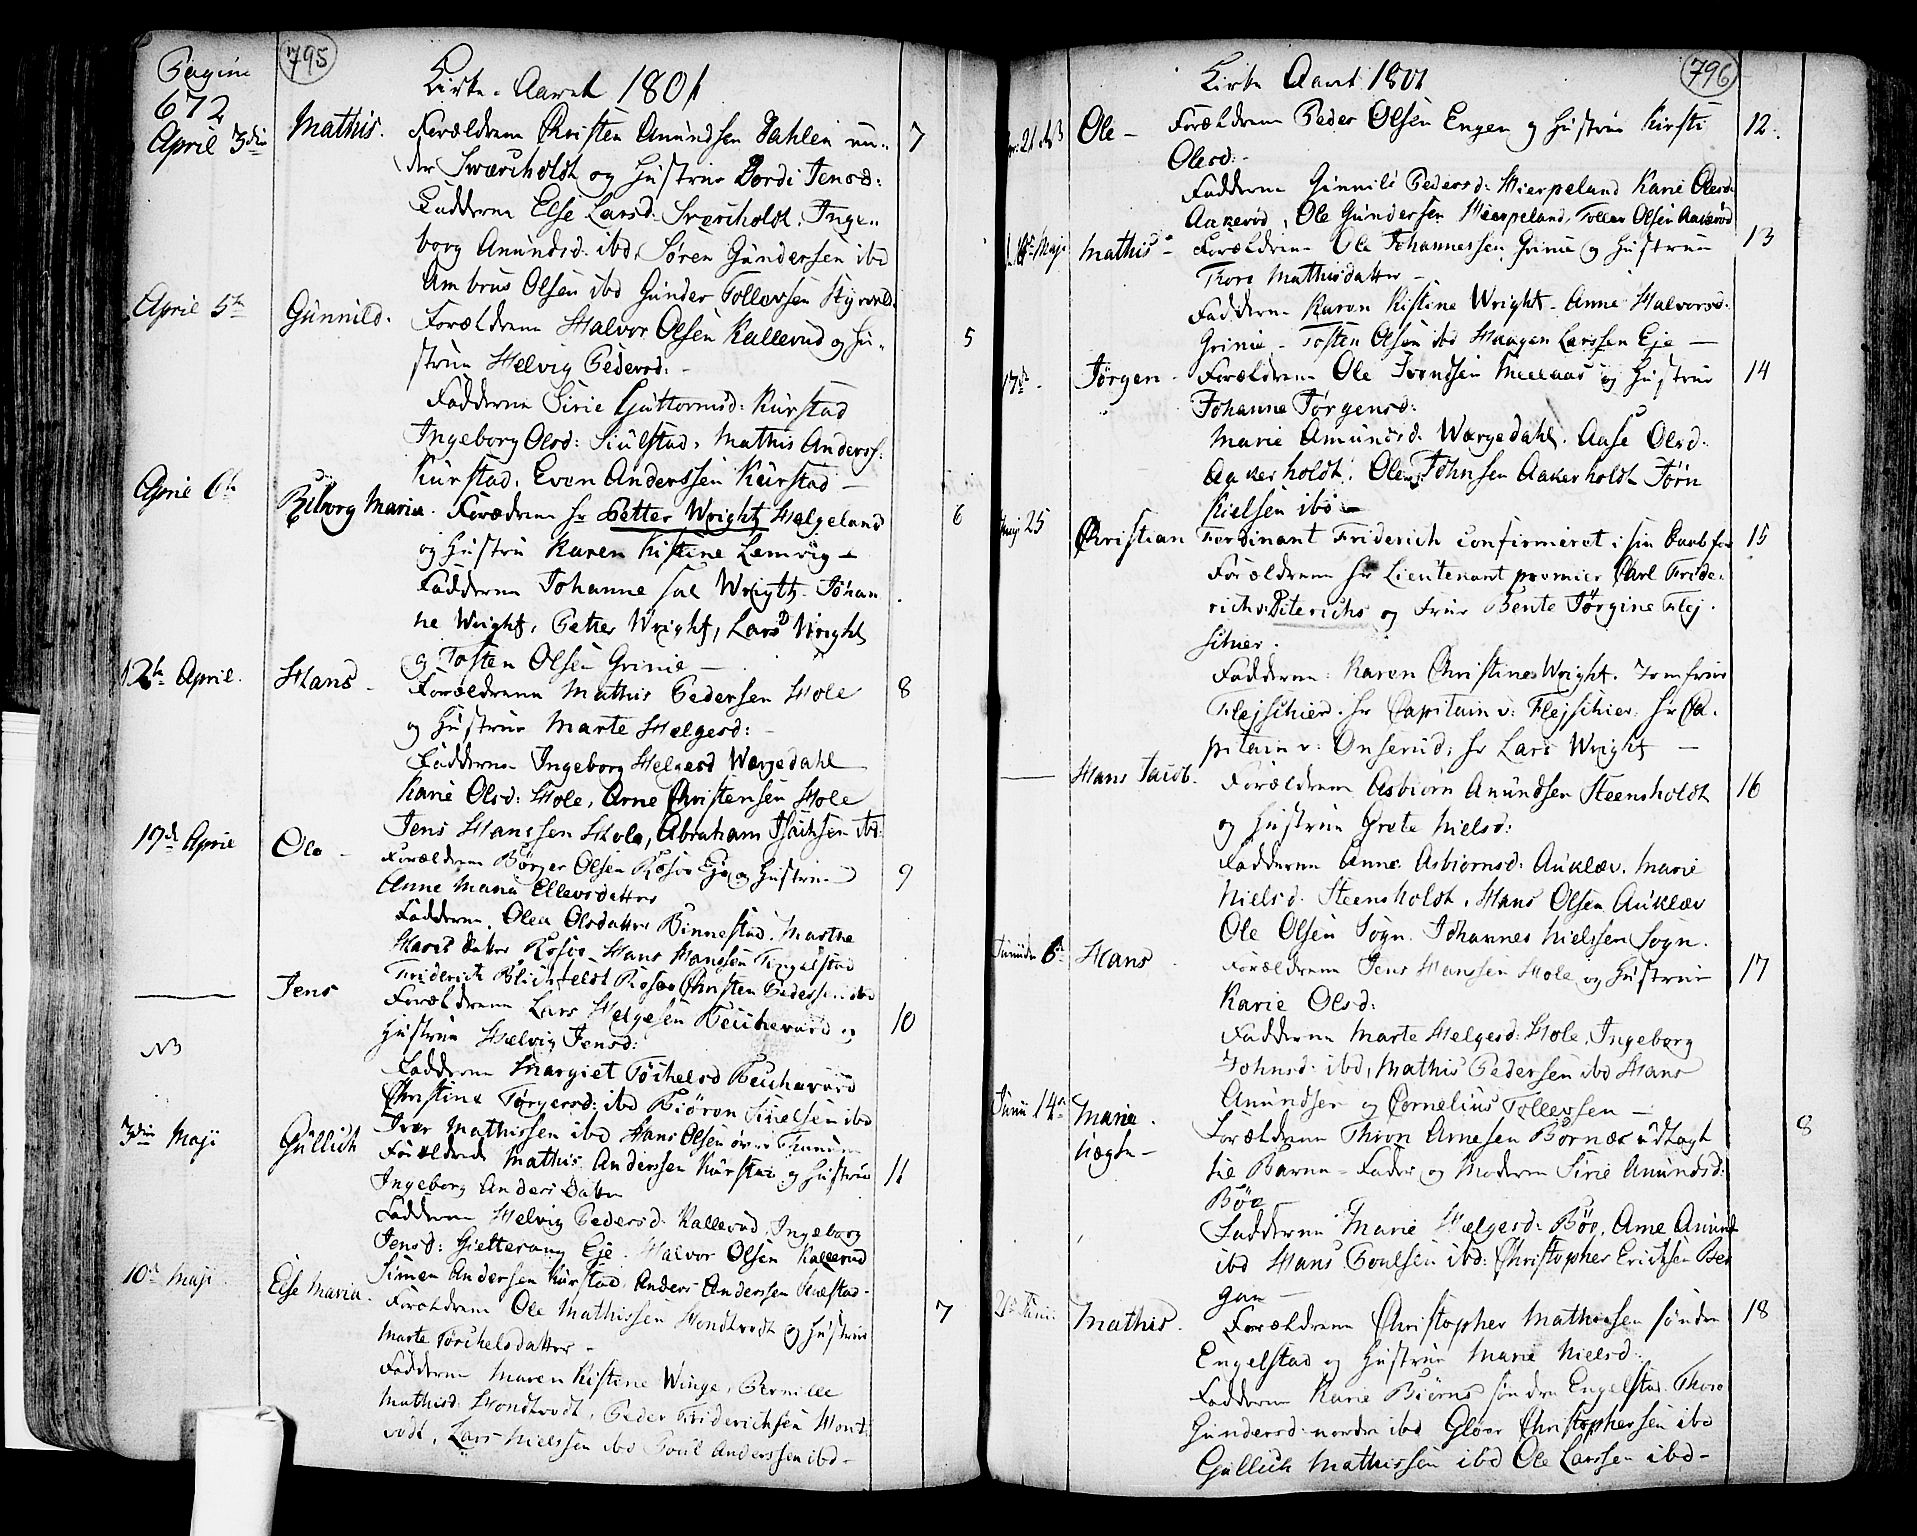 Pagina
672
795
Kirke-Aaret 1801
April 3die Mathis. Forældrene Christen Anundsen Dahlen un- 7
der Sværiholdt og Hustrue Dordi Jensd:
Fadderne Else Larsd: Sværiholdt, Inge-
borg Anundsd: ibd, Søren Gundersen ibd
Ambrus Olsen ibd Gunder Tollevsen
April 5te Gunnild. Forældrene Halvor Olsen Kallerud og Hu- 5
strue Helvig Pedersd: -
Fadderne Sirie Guttormsd: Kurstad
Ingeborg Olsd: Siulstad, Mathis Anderss:
Kurstad, Even Anderssen Kurstad -
April 6te Riborg Maria. Forædrene hr Petter Wright Helgeland 6
og Hustru Karen Kistine Lemvig -
Fadderne Johanne sal Wrigth. Johan
ne Wright, Petter Wright, Lars Wright
og Tosten Olsen Grinie -
12te April. Hans - Forældrene Mathis Pedersen Hole 8
og Hustrue Marte Helgesd: -
Fadderne Ingeborg Helgesd Wærgedahl
Karie Olsd: Hole, Arne Christensen Hole
Jens Hanssen Hole, Abraham Isachsen ibd:
17de April Ole - Forældrene Børger Olsen Rosøe Eje og Hustrue 9
Anne Maria Ellevsdatter
Fadderne Olea Olsdatter Binnestad. Marthe
datter Rosøe, Hans Hanssen
Friderich Blichfeldt Rosøe Christen Pederssen ibd
Jens Forældrene Lars Helgesen og 10
NB Hustrue Helvig Jensd:
Fadderne Margiet
Christine Torgersd: ibd Biøron ibd
Iver Mathissen ibd Hans Olsen
3die Maji Gullich Forældrene Mathis Anderssen Kurstad og Hustrue 11
Ingeborg Anders datter
Fadderne Helvig Pedersd: Kallerud, Ingeborg
Jensd: Gietterang Eje. Halvor Olsen Kallerud
Simen Andersen Kurstad, Anders Anderssen
10de Maji Else Maria. Forældrene Ole Mathissen Hondtvedt og Hustrue 7
Marte Torchelsdatter -
Fadderne Maren Kistine Winge, Pernille
Mathisd: Hondtvedt, Peder Friderichsen Hondt
vedt, Lars Nielssen ibd Poul Anderssen ibd -
796
Kirke Aaret 1801
Ole - Forældrene Peder Olsen Engen og Hustrue Kirsti 12.
Olesd: -
Fadderne Gunnild Pedersd: Hierpeland Karie Olesd:
Aakerød, Ole Gundersen Hierpeland, Tollev Olsen Aakerød
Maji Mathis - Forældrene Ole Johannessen Grinie og Hustrue 13
Thore Mathisdatter -
Fadderne Karen Kistine Wright. Anne Halvorsd:
Grinie - Tosten Olsen ibd Haagen Larssen Eje -
17de - Jørgen - Forældrene Ole Svendsen og Hustrue 14
Johanne Jørgensd:
Marie Amundsd. Wærgedahl. Aase Olsd.
Aakerholdt, Ole Johnsen Aakerholdt Jørn
Kielsen ibd -
Maji 25 Christian Ferdinant Friderich confirmeret i sin Daab 15
Forældrene hr Lieutenant premier Carl Fride-
rich v: Diterichs og Frue Bente Jørgine Flej-
schier.
Fadderne: Karen Christine Wright. Jomfrue
Flejschier. hr Capitain v: Flejschier. hr Ca-
pitain v: Onserud, hr Lars Wright -
Hans Jacob. Forældrene Asbiørn Anundsen Steensholdt 16
og Hustrue Grete Nielsd:
Fadderne Anne Asbiørnsd: Auklæv. Marie
Nielsd. Steensholdt, Hans Olsen Auklæv
Ole Olsen Sogn. Johannes Nielssen Sogn.
6te Hans Forældrene Jens Hanssen Hole og Hustrue 17
Karie Olsd:
Fadderne Marte Helgesd: Hole, Ingeborg
Johnsd: ibd, Mathis Pedersen ibd Hans
Anundsen og Cornelius Tollevsen -
Junii 14de Maria. Forældrene Thron Arnesen Bornæs udlagt 8
uægte - til Barne-Fader og Moderen Sirie Anundsd:
Bøe -
Fadderne Marie Helgesd: Bøe, Arne Anund
ibd Hans Poulsen ibd: Christopher Ericksen Ber
gan -
21de Junii Mathis. Forældrene Christopher Mathissen søndre 18
Engelstad og Hustrue Marie Nielsd.
Fadderne Karie Biørns søndre Engelstad. Thore
Gundersd: nordre ibd Gloer Christophersen ibd
Gullich Mathissen ibd Ole Larssen ibd -